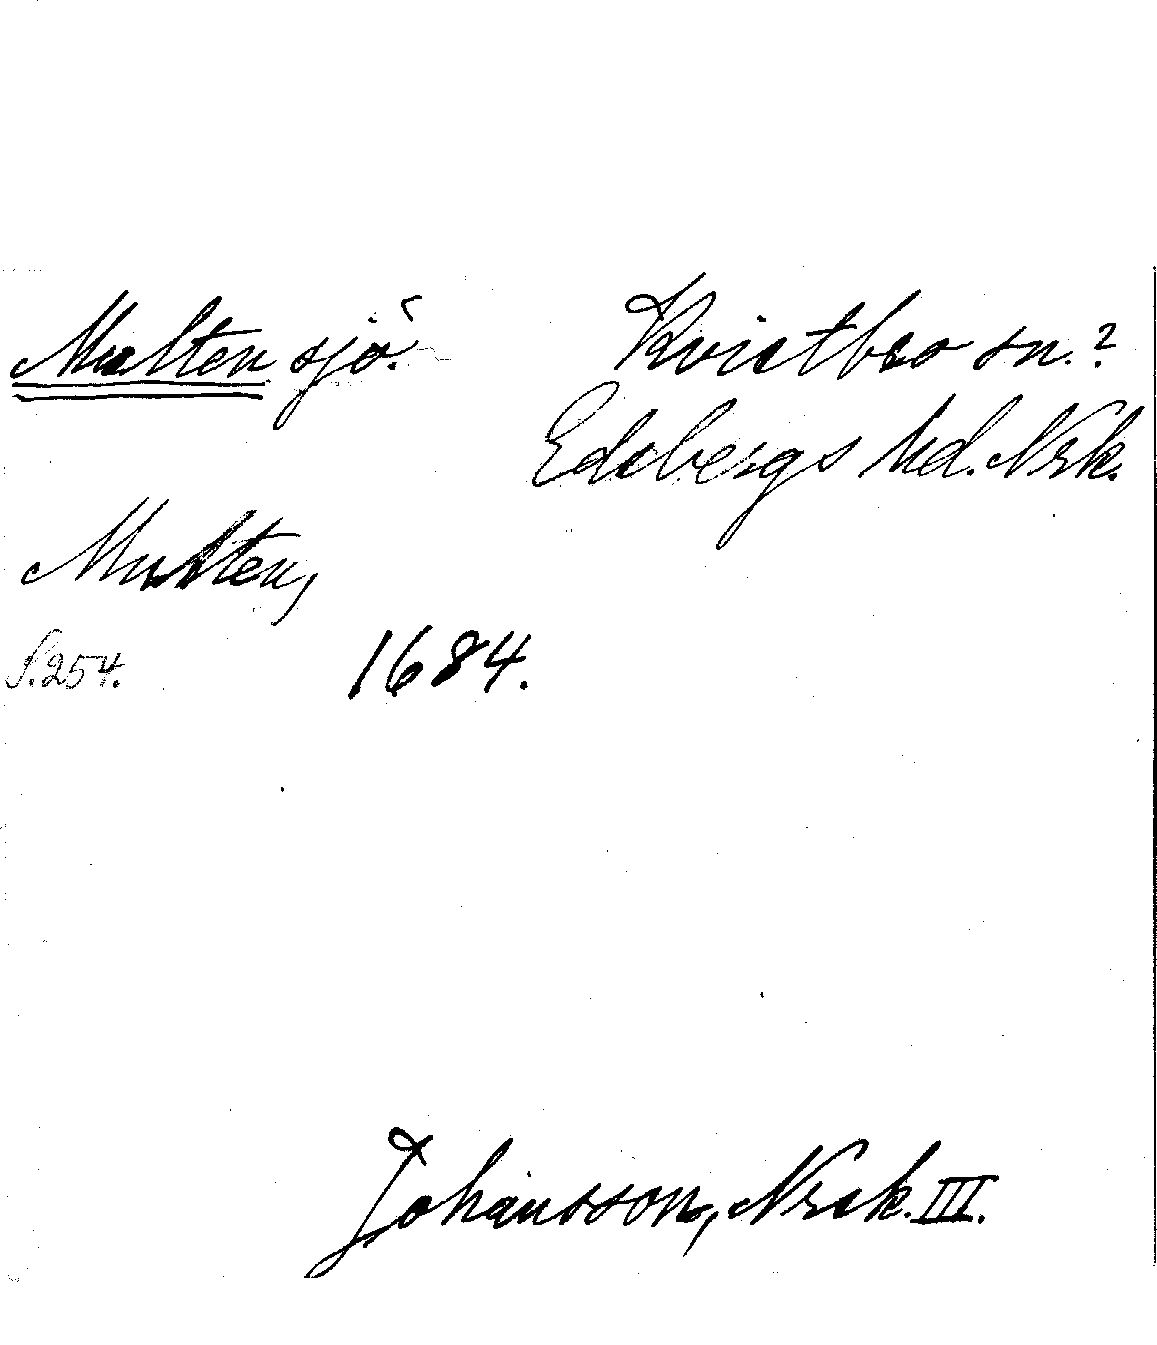 Multen sjö. Kvistbro sn.?
Edsbergs hd. Nrk.
Multen,
S. 254. 1684.
Johansson, Nrsk. III.